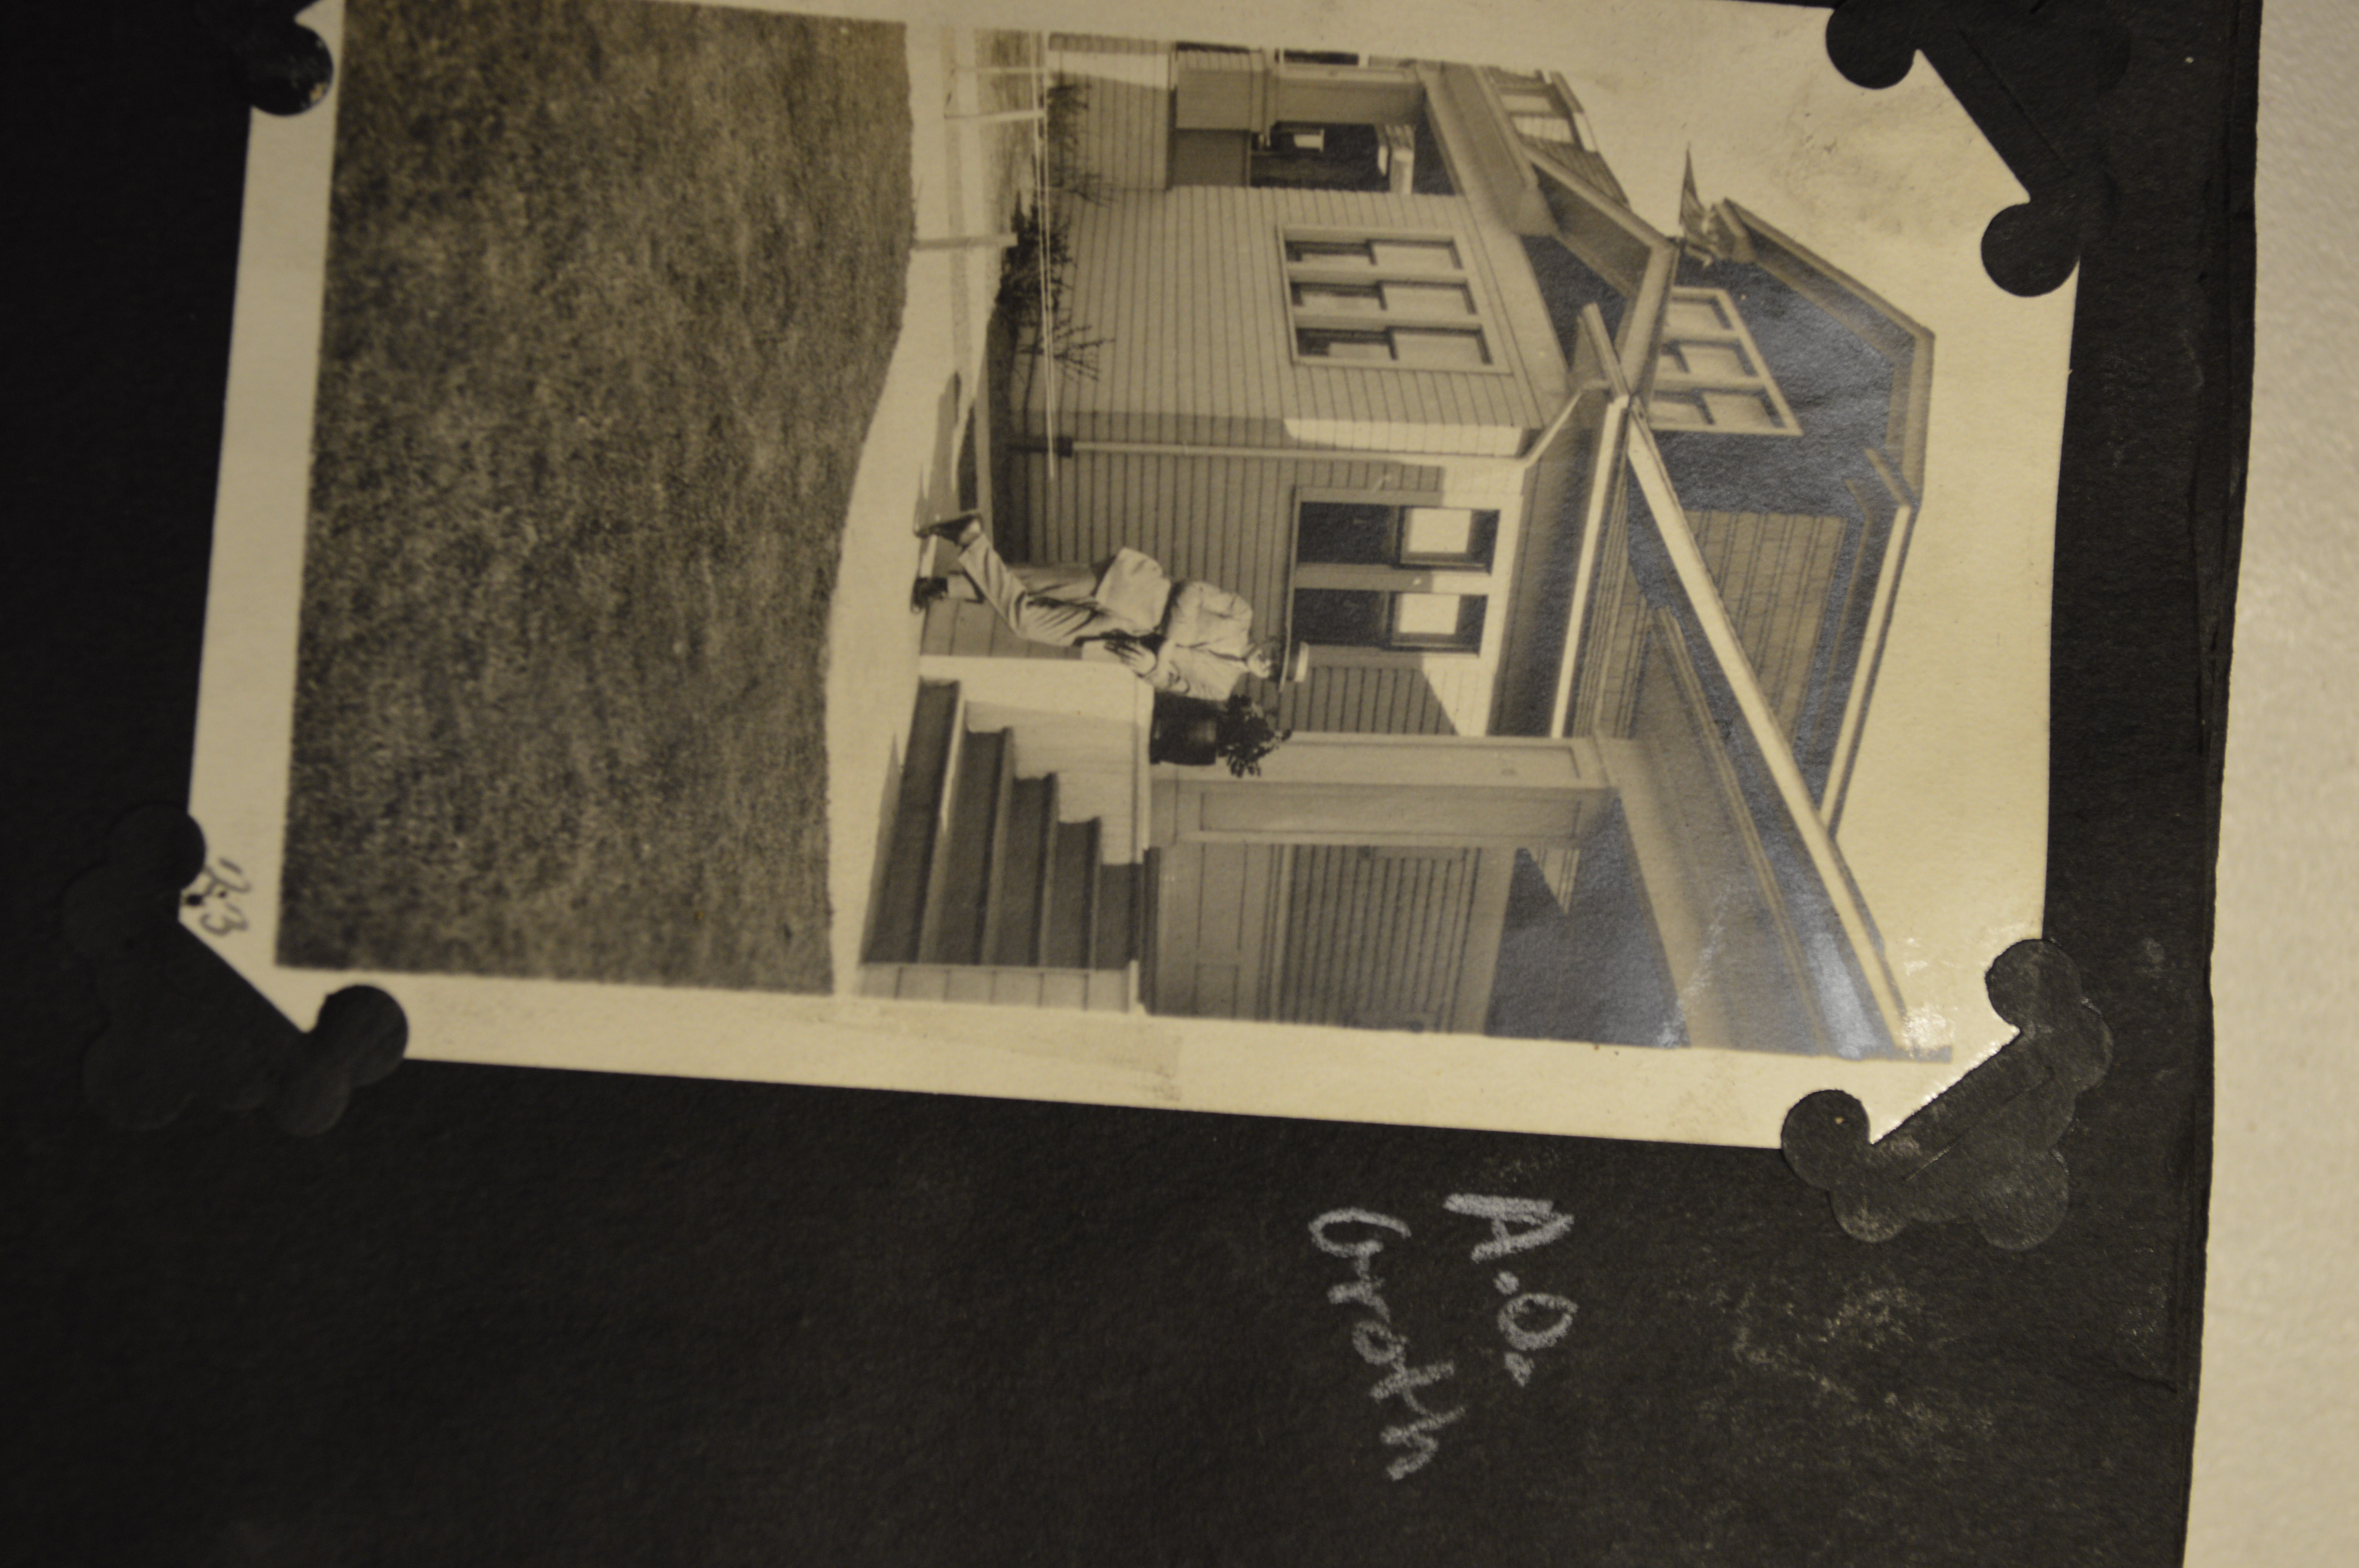 A.O.
Groth
23